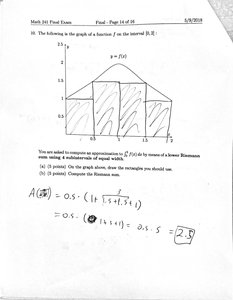 Math 241 Final Exam Final - Page 14 of 16 5/9/2018
10. The following is the graph of a function f on the interval [0, 2]:
2.5
y = f(x)
2
1.5
1
0.5
0.5 1 1.5 2
You are asked to compute an approximation to ∫ f(x) dx by means of a lower Riemann
sum using 4 subintervals of equal width.
(a) (5 points) On the graph above, draw the rectangles you should use.
(b) (5 points) Compute the Riemann sum.
= 0.5 · (1 + 1.5 + 1.5 + 1)
= 0.5 · ( 4 + 1) = 0.5 · 5 = 2.5